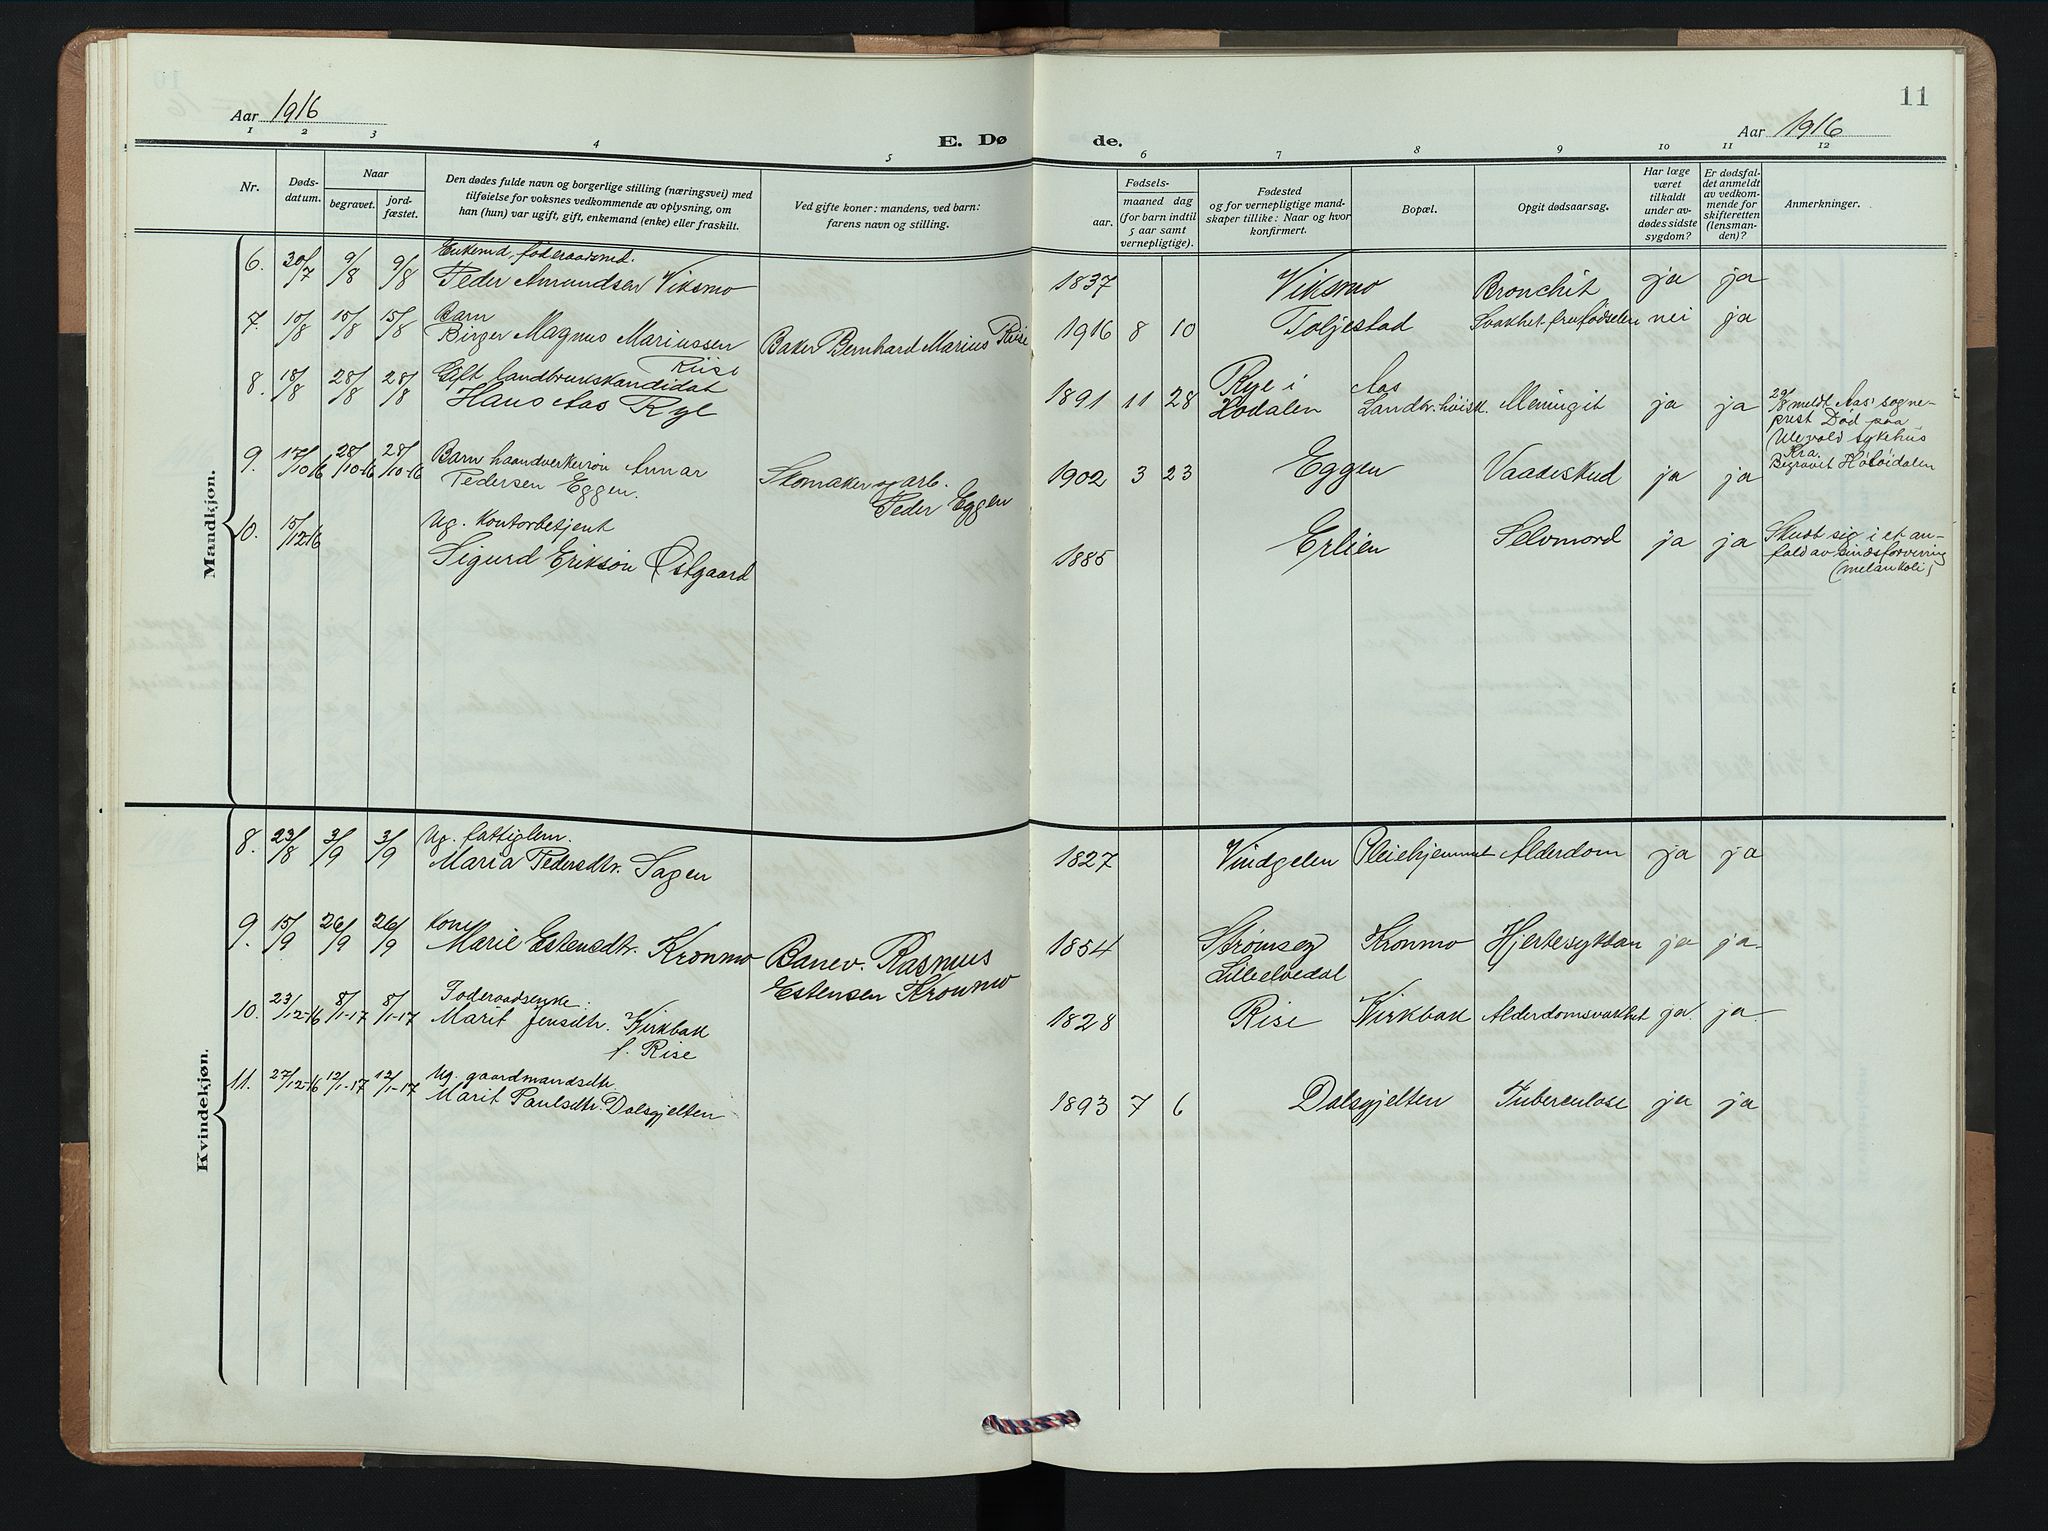 11
Aar 1916
Aar 1916
E. Dø de.
1 2 3 4 5 6 7 8 9 10 11 12
Nr.
Døds-
datum.
Naar
begravet.
jord-
fæstet.
Den dødes fulde navn og borgerlige stilling (næringsvei) med
tilføielse for voksnes vedkommende av oplysning, om
han (hun) var ugift, gift, enkemand (enke) eller fraskilt.
Ved gifte koner: mandens, ved barn:
farens navn og stilling.
Fødsels-
aar.
maaned dag
(for barn indtil
5 aar samt
vernepligtige).
Fødested
og for vernepligtige mand-
skaper tillike: Naar og hvor
konfirmert.
Bopæl.
Opgit dødsaarsag.
Har læge
været
tilkaldt
under av-
dødes sidste
sygdom?
Er dødsfal-
det anmeldt
av vedkom-
mende for
skifteretten
(lensman-
den)?
Anmerkninger.
Mandkjøn.
6. 30/7 9/8 9/8 Enkemd, føderaadsmd.
Peder Amundsen Viksmo 1837 Viksmo Bronchit ja ja
7. 10/8 15/8 15/8 Barn
Birger Magnus Mariussen
Riise
Baker Bernhard Marius Riise 1916 8 10 Toljestad Svakhet fra fødselen nei ja
8. 18/8 28/8 28/8 Gift landbrukskandidat
Hans Aas Rye 1891 11 28 Rye i
Hodalen
Aas
Landbr. høisk. Meningit ja ja
20/8 meldt Aas' sogne-
prest Død paa
Ulevold sykehus
Kra.
Begravet Holøidalen
9. 17/10-16 28/10-16 28/10-16 Barn haandverkersøn Annar
Pedersen Eggen.
Skomaker og arb.
Peder Eggen
1902 3 23 Eggen Vaadeskud ja ja
10. 15/12-16 Ug. kontorbetjent
Sigurd Eriksøn Østgaard 1885 Erlien Selvmord ja ja
Skudt sig i et an-
fald av sindsforvirring
(melankoli)
Kvindekjøn.
8. 23/8 3/9 3/9 Ug. fattiglem.
Maria Pedersdtr. Sagen 1827 Vindgelen Pleiehjemmet Alderdom ja ja
9. 15/9 26/9 26/9 Kone
Marie Estensdtr. Kronmo
Banev. Rasmus
Estensen Kronmo
1854 Strømseg
Lilleelvedal
Kronmo Hjertesykdom ja ja
10. 23/12-16 8/1-17 8/1-17 Føderaadsenke:
Marit Jensdtr. Kirkbak
f. Rise
1828 Rise Kirkbak Alderdomsvakhet ja ja
11. 27/12-16 12/1-17 12/1-17 Ug. gaardmandsdtr.
Marit Paulsdtr. Dalsgjelten 1893 7 6 Dalsgjelten Tuberculose ja ja